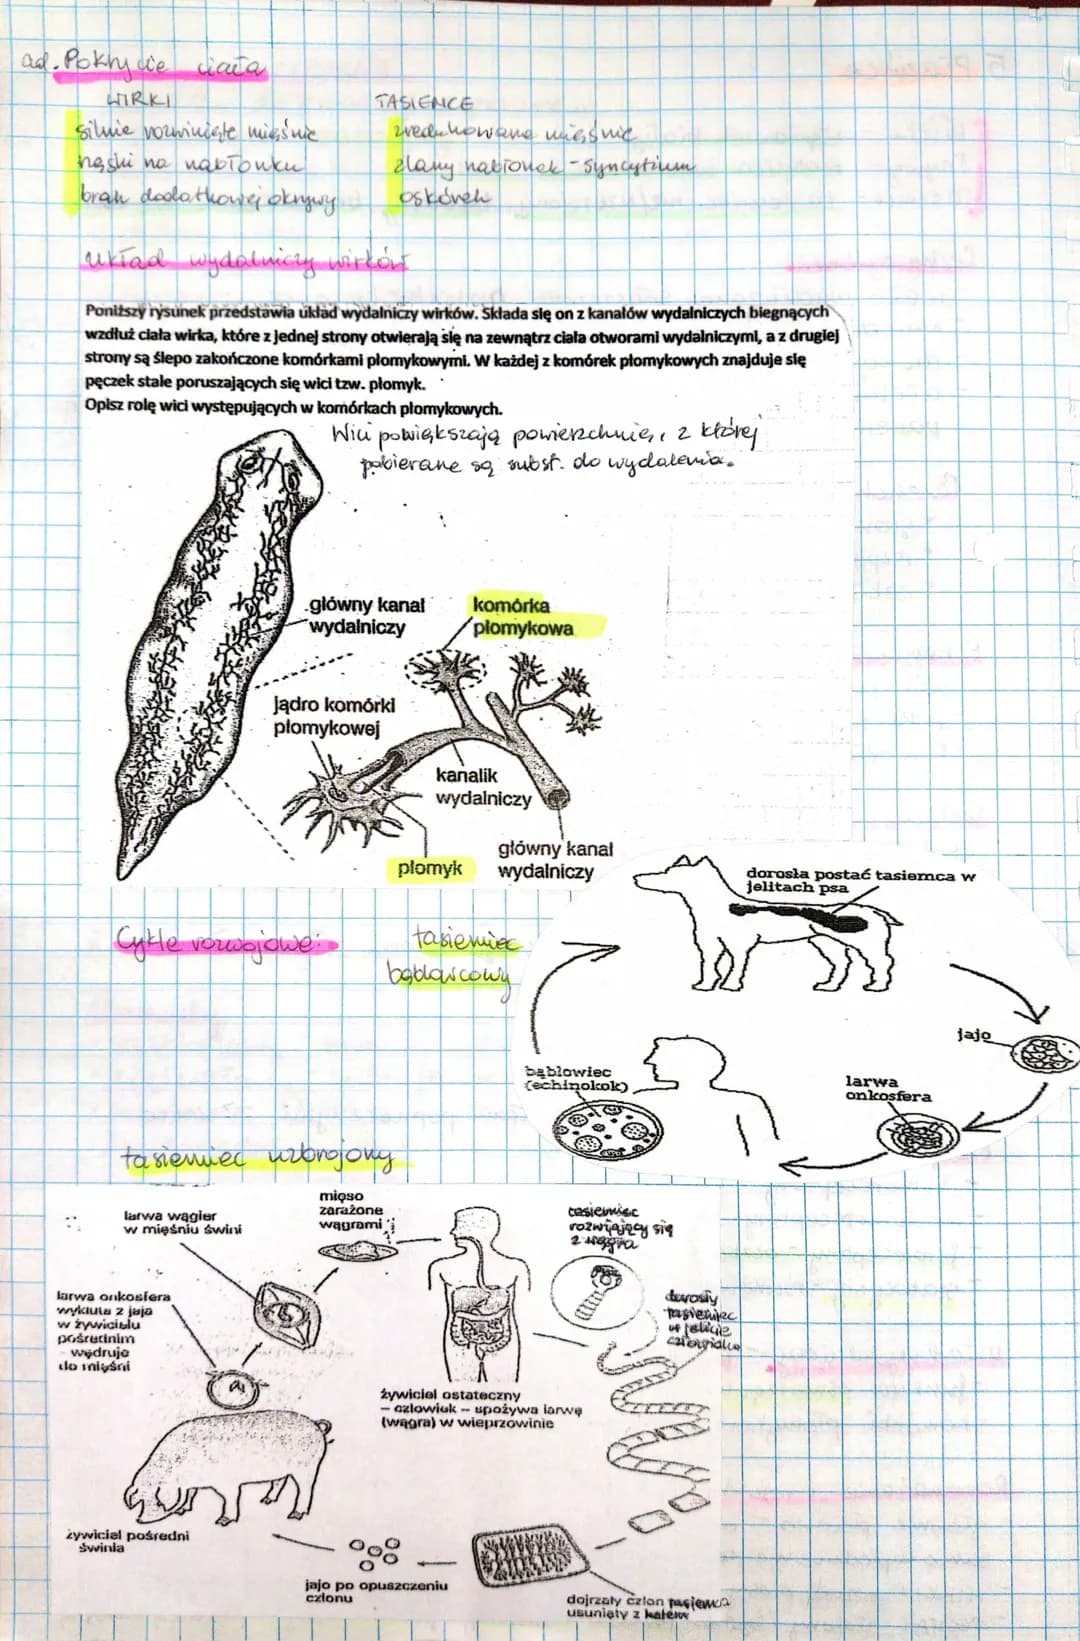 ad. Pokrycie ciała
WIRKI
silnie rozwinięte mięśnie
rzęski na nabłonku
brak dodatkowej okrywy
TASIEMCE
zredukowane mięśnie
zlany nabłonek - syncytium
oskórek
Układ wydalniczy wirków
Poniższy rysunek przedstawia układ wydalniczy wirków. Składa się on z kanałów wydalniczych biegnących
wzdłuż ciała wirka, które z jednej strony otwierają się na zewnątrz ciała otworami wydalniczymi, a z drugiej
strony są ślepo zakończone komórkami płomykowymi. W każdej z komórek płomykowych znajduje się
pęczek stale poruszających się wici tzw. płomyk.
Opisz rolę wici występujących w komórkach płomykowych.
Wici powiększają powierzchnię, z której
pobierane są subst. do wydalenia.
główny kanał
wydalniczy
komórka
płomykowa
jądro komórki
płomykowej
kanalik
wydalniczy
płomyk
główny kanał
wydalniczy
Cykle rozwojowe:
tasiemiec
bąblowcowy
dorosła postać tasiemca w
jelitach psa
jajo
larwa
onkosfera
bąblowiec
(echinokok)
tasiemiec uzbrojony
larwa wągier
w mięśniu świni
mięso
zarażone
wągrami
tasiemiec
rozwijający się
z wągra
larwa onkosfera
wykluta z jaja
w żywicielu
pośrednim
wędruje
do mięśni
dorosły
tasiemiec
w jelicie
człowieka
żywiciel ostateczny
– człowiek – spożywa larwę
(wągra) w wieprzowinie
żywiciel pośredni
świnia
jajo po opuszczeniu
członu
dojrzały człon tasiemca
usunięty z kałem